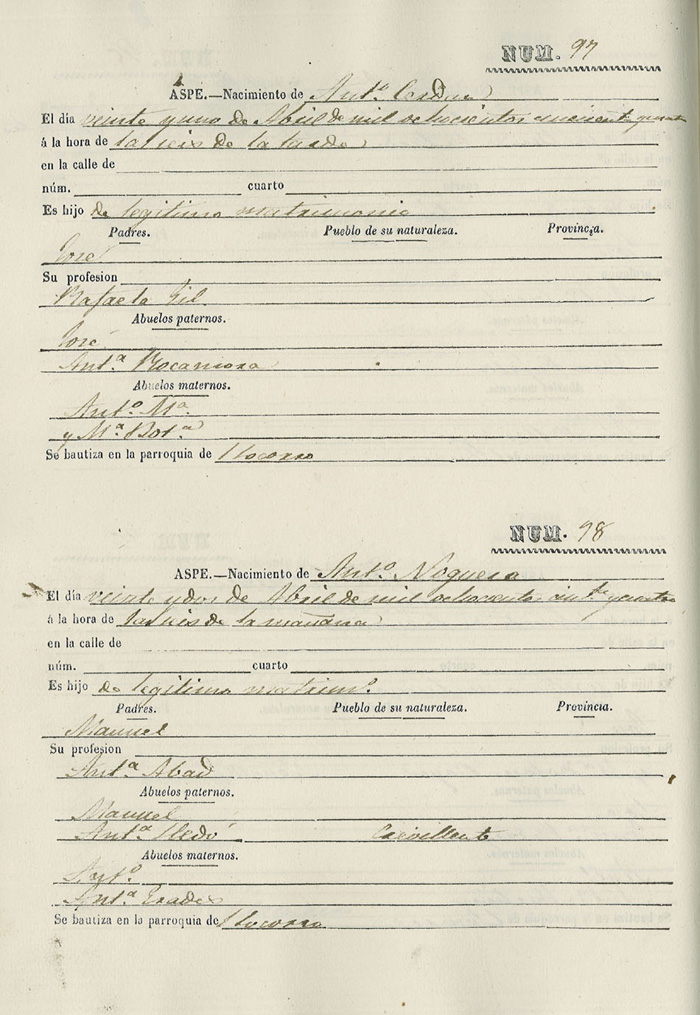 NUM. 97
ASPE.—Nacimiento de Ant.º Cerdan
El día veinte y uno de Abril de mil ochocientos cincuenta y cuatro
á la hora de las seis de la tarde
en la calle de
núm. cuarto
Es hijo de legitimo matrimonio
Padres. Pueblo de su naturaleza. Provincia.
José
Su profesion
Rafaela Gil
Abuelos paternos.
José
Ant.ª Rocamora
Abuelos maternos.
Ant.º M.ª
y M.ª Bot.ª
Se bautiza en la parroquia de Socorro
NUM. 98
ASPE.—Nacimiento de Ant.º Noguera
El día veinte y dos de Abril de mil ochocientos cin.ta y cuatro
á la hora de las seis de la mañana
en la calle de
núm. cuarto
Es hijo de legitimo matrim.º
Padres. Pueblo de su naturaleza. Provincia.
Manuel
Su profesion
Ant.ª Abad
Abuelos paternos.
Manuel
Ant.ª Lledó Crevillente
Abuelos maternos.
Ant.º
Ant.ª Prades
Se bautiza en la parroquia de Socorro